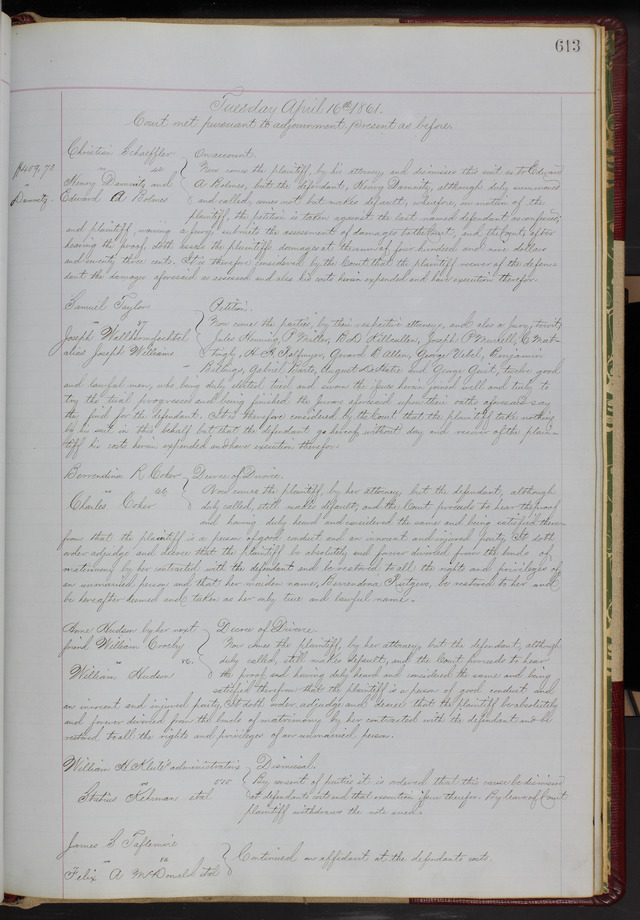 613
Tuesday April 16th 1861.
Court met pursuant to adjournment. Present as before.
Christian Schaeffler
On account.
$409.73
Now comes the plaintiff, by his attorney and dismisses this suit as to Edward
Henry Damnitz and
A Bolmes, but the defendant, Henry Damnitz, although duly summoned
Damnitz
Edward A Bolmes
and called, comes not but makes default, wherefore, on motion of the
plaintiff, the petition is taken against the last named defendant, as confessed,
and plaintiff, waiving a jury, submits the assessment of damages to the Court, and the Court, after
hearing the proof, doth assess the plaintiffs damages at the sum of four hundred and nine dollars
and seventy three cents. It is therefore considered by the Court, that the plaintiff recover of the defen-
dant the damages aforesaid as assessed and also his costs herein expended and have execution therefor.
Samuel Taylor
Petition.
vs
Now come the parties by their respective attorneys, and also a Jury, to wit:
Joseph
Jules Henning, P Miller, B D Killian, Joseph P
alias Joseph Williams
Gerard B Allen, George Vebel, Benjamin
Billings, Gabriel and George twelve good
and lawful men, who being duly elected tried and sworn the issue herein joined well and truly to
try the trial progresses and being finished the Jurors aforesaid upon their oaths aforesaid say
they find for the defendant. It is therefore considered by the Court that the plaintiff take nothing
by his suit in this behalf but that the defendant go hereof without day and recover of the plain-
tiff his costs herein expended and have execution therefor.
Berrendina R. Coker
Decree of Divorce.
vs
Now comes the plaintiff, by her attorney, but the defendant, although
Charles Coker
duly called, still makes default, and the Court proceeds to hear the proof
and having duly heard and considered the same and being satisfied there-
from that the plaintiff is a person of good conduct and an innocent and injured party, It doth
order adjudge and decree that the plaintiff be absolutely and forever divorced from the bonds of
matrimony by her contracted with the defendant and be restored to all the rights and privileges of
an unmarried person and that her maiden name, Berrendina Rutgers, be restored to her and
be hereafter deemed and taken as her only true and lawful name.
Anne Hudson by her next
Decree of Divorce.
friend William Crosby
Now comes the plaintiff, by her attorney, but the defendant, although
vs.
duly called, still makes default, and the Court proceeds to hear
William Hudson
the proof and having duly heard and considered the same and being
satisfied therefrom that the plaintiff is a person of good conduct and
an innocent and injured party, It doth order, adjudge and decree that the plaintiff be absolutely
and forever divorced from the bonds of matrimony by her contracted with the defendant and be
restored to all the rights and privileges of an unmarried person.
William H administrators
Dismissal.
vs
By consent of parties it is ordered that this cause be dismissed
Kehrman etal
at defendants costs and that execution issue therefor. By leave of Court
plaintiff withdraws the note sued.
James S.
vs
Continued on affidavit at the defendants costs.
Felix A McDonald etal